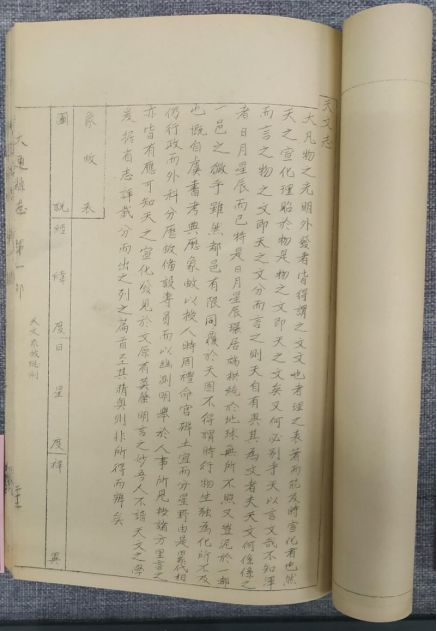 天文志
大凡物之光明外發者皆得謂之文文也者理之表著而能及時宣化者也然
天之宣化理貽於物是物之文即天之文矣又何必別乎天以言文哉不知渾
而言之物之文即天之文分而言之則天自有其文者夫天文何係係之
者日月星辰而已特是日月星辰環居拱統於地球無所不照又豈泥於一部
一邑之微乎雖然都邑有限同覆於天固不得謂時行物生獨為化所不及
也慨自虞書考典歷象敬以授人時周禮命官辨土宜而分星野由是累代相
仍行政而外科分歷政備設專員而以編測明舉於人事所見按諸方里言之
亦皆有應可知天之宣化發見於文原有英榮明言之所吾人不諳天文之學
爰據省志詳載分而出之列之篇首至其精奧則非所得而辨矣
象 政 表
圖 說 經 緯 度 日 星 度 祥 異
大 通 縣 志 第一部
天文